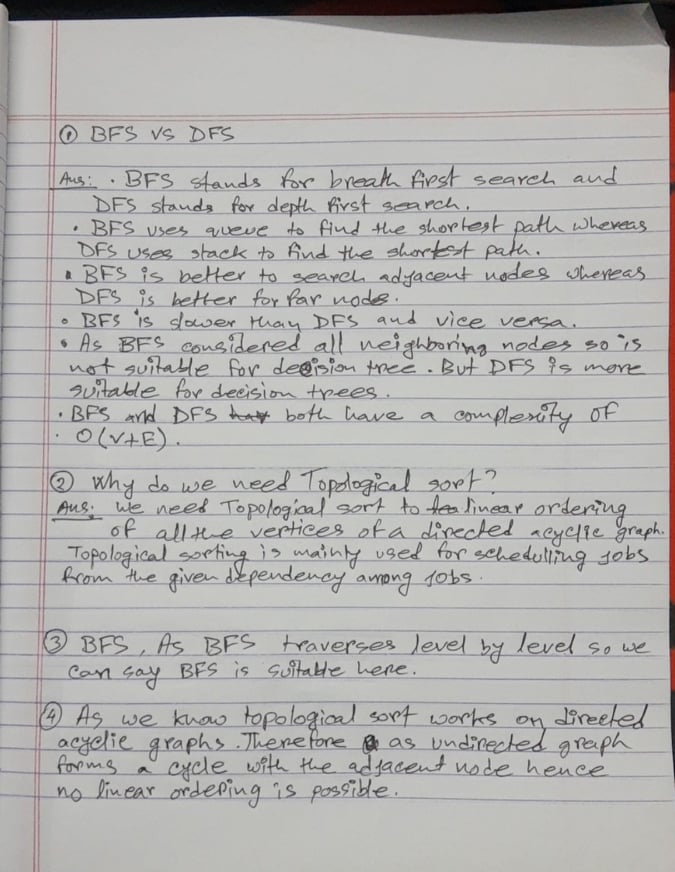 ① BFS VS DFS
Ans: · BFS stands for breath first search and
DFS stands for depth first search.
· BFS uses queue to find the shortest path whereas
DFS uses stack to find the shortest path.
· BFS is better to search adjacent nodes whereas
DFS is better for far node.
· BFS is slower than DFS and vice versa.
· As BFS considered all neighboring nodes so is
not suitable for decision tree. But DFS is more
suitable for decision trees.
· BFS and DFS both have a complexity of
· O(V+E).
② Why do we need Topological sort?
Ans: We need Topological sort to linear ordering
of all the vertices of a directed acyclic graph.
Topological sorting is mainly used for schedulling jobs
from the given dependency among jobs.
③ BFS, As BFS traverses level by level so we
can say BFS is suitable here.
④ As we know topological sort works on directed
acyclic graphs. Therefore as undirected graph
forms a cycle with the adjacent node hence
no linear ordering is possible.